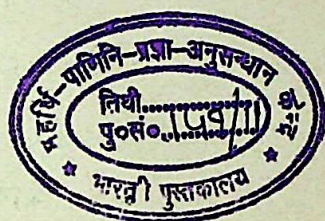 महर्षि-पाणिनि-प्रज्ञा-अनुसन्धान
तिथी..................
पु०सं०..............
भारती पुस्तकालय